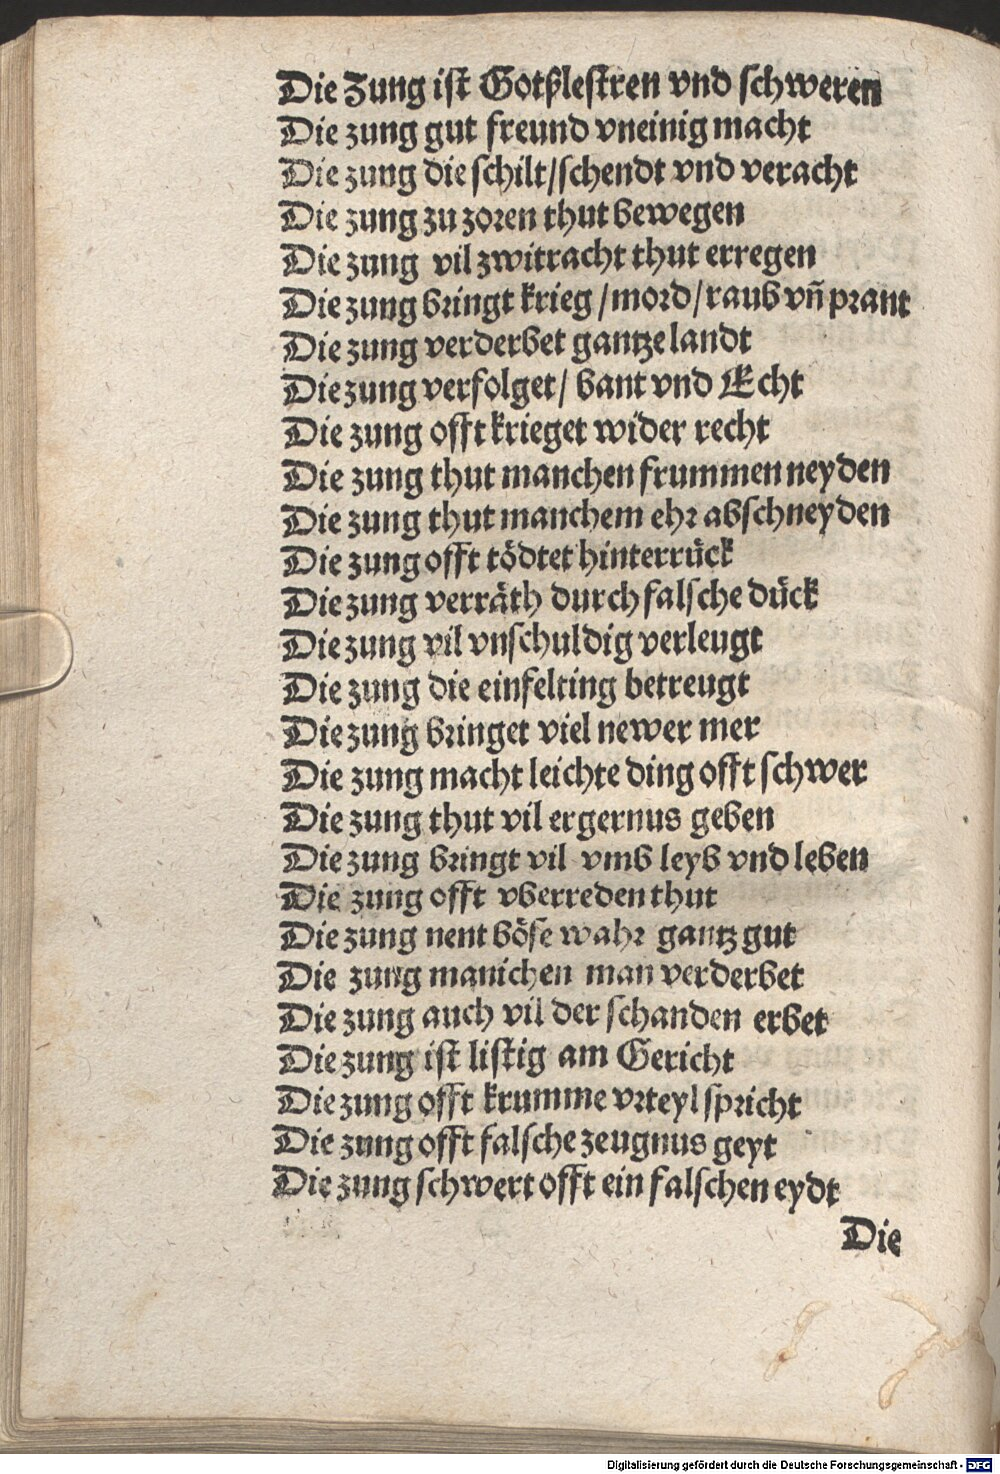 Die Zung ist Gotßlestren vnd schweren
Die zung gut freund vneinig macht
Die zung die schilt/schendt vnd veracht
Die zung zu zoren thut bewegen
Die zung vil zwitracht thut erregen
Die zung bringt krieg/mord/raub vñ prant
Die zung verderbet gantze landt
Die zung verfolget/ bant vnd Echt
Die zung offt krieget wider recht
Die zung thut manchen frummen neyden
Die zung thut manchem ehr abschneyden
Die zung offt tödtet hinterrück
Die zung verräth durch falsche dück
Die zung vil vnschuldig verleugt
Die zung die einfelting betreugt
Die zung bringet viel newer mer
Die zung macht leichte ding offt schwer
Die zung thut vil ergernus geben
Die zung bringt vil vmb leyb vnd leben
Die zung offt vberreden thut
Die zung nent böse wahr gantz gut
Die zung manichen man verderbet
Die zung auch vil der schanden erbet
Die zung ist listig am Gericht
Die zung offt krumme vrteyl spricht
Die zung offt falsche zeugnus geyt
Die zung schwert offt ein falschen eydt
Die
Digitalisierung gefördert durch die Deutsche Forschungsgemeinschaft - DFG